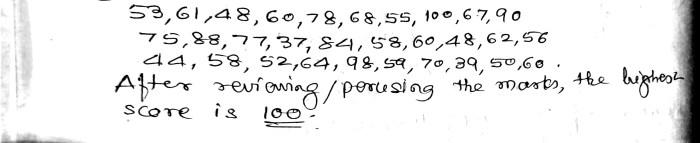 53, 61, 48, 60, 78, 68, 55, 100, 67, 90
75, 88, 77, 37, 84, 58, 60, 48, 62, 56
44, 58, 52, 64, 98, 59, 70, 39, 50, 60.
After reviewing/perusing the marks, the highest
score is 100.